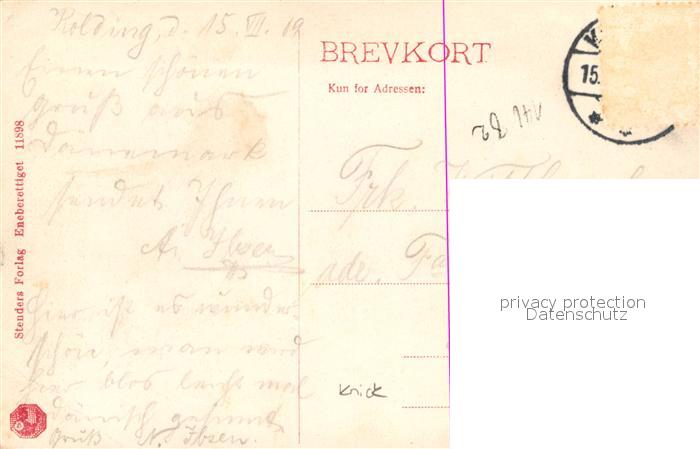 Kolding, d. 15. VII. 12
Einen schönen
Gruß aus
Dänemark
sendet Ihnen
A. Ibsen
Hier ist es wunder-
schön, man wird
hier blos leicht mal
dänisch
Gruß N. Ibsen.
Stenders Forlag Eneberettiget 11898
BREVKORT
Kun for Adressen:
15.
Frk.
ade. Fa
Knick
privacy protection
Datenschutz